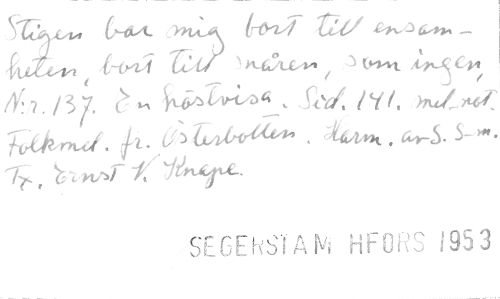 Stigen bar mig bort till ensam-
heten, bort till snåren, som ingen,
N:r. 137. En höstvisa. Sid. 141. mel.-not.
Folkmel. fr. Österbotten. Harm. av S. S-m.
Tx. Ernst V. Knape.
SEGERSTAM HFORS 1953